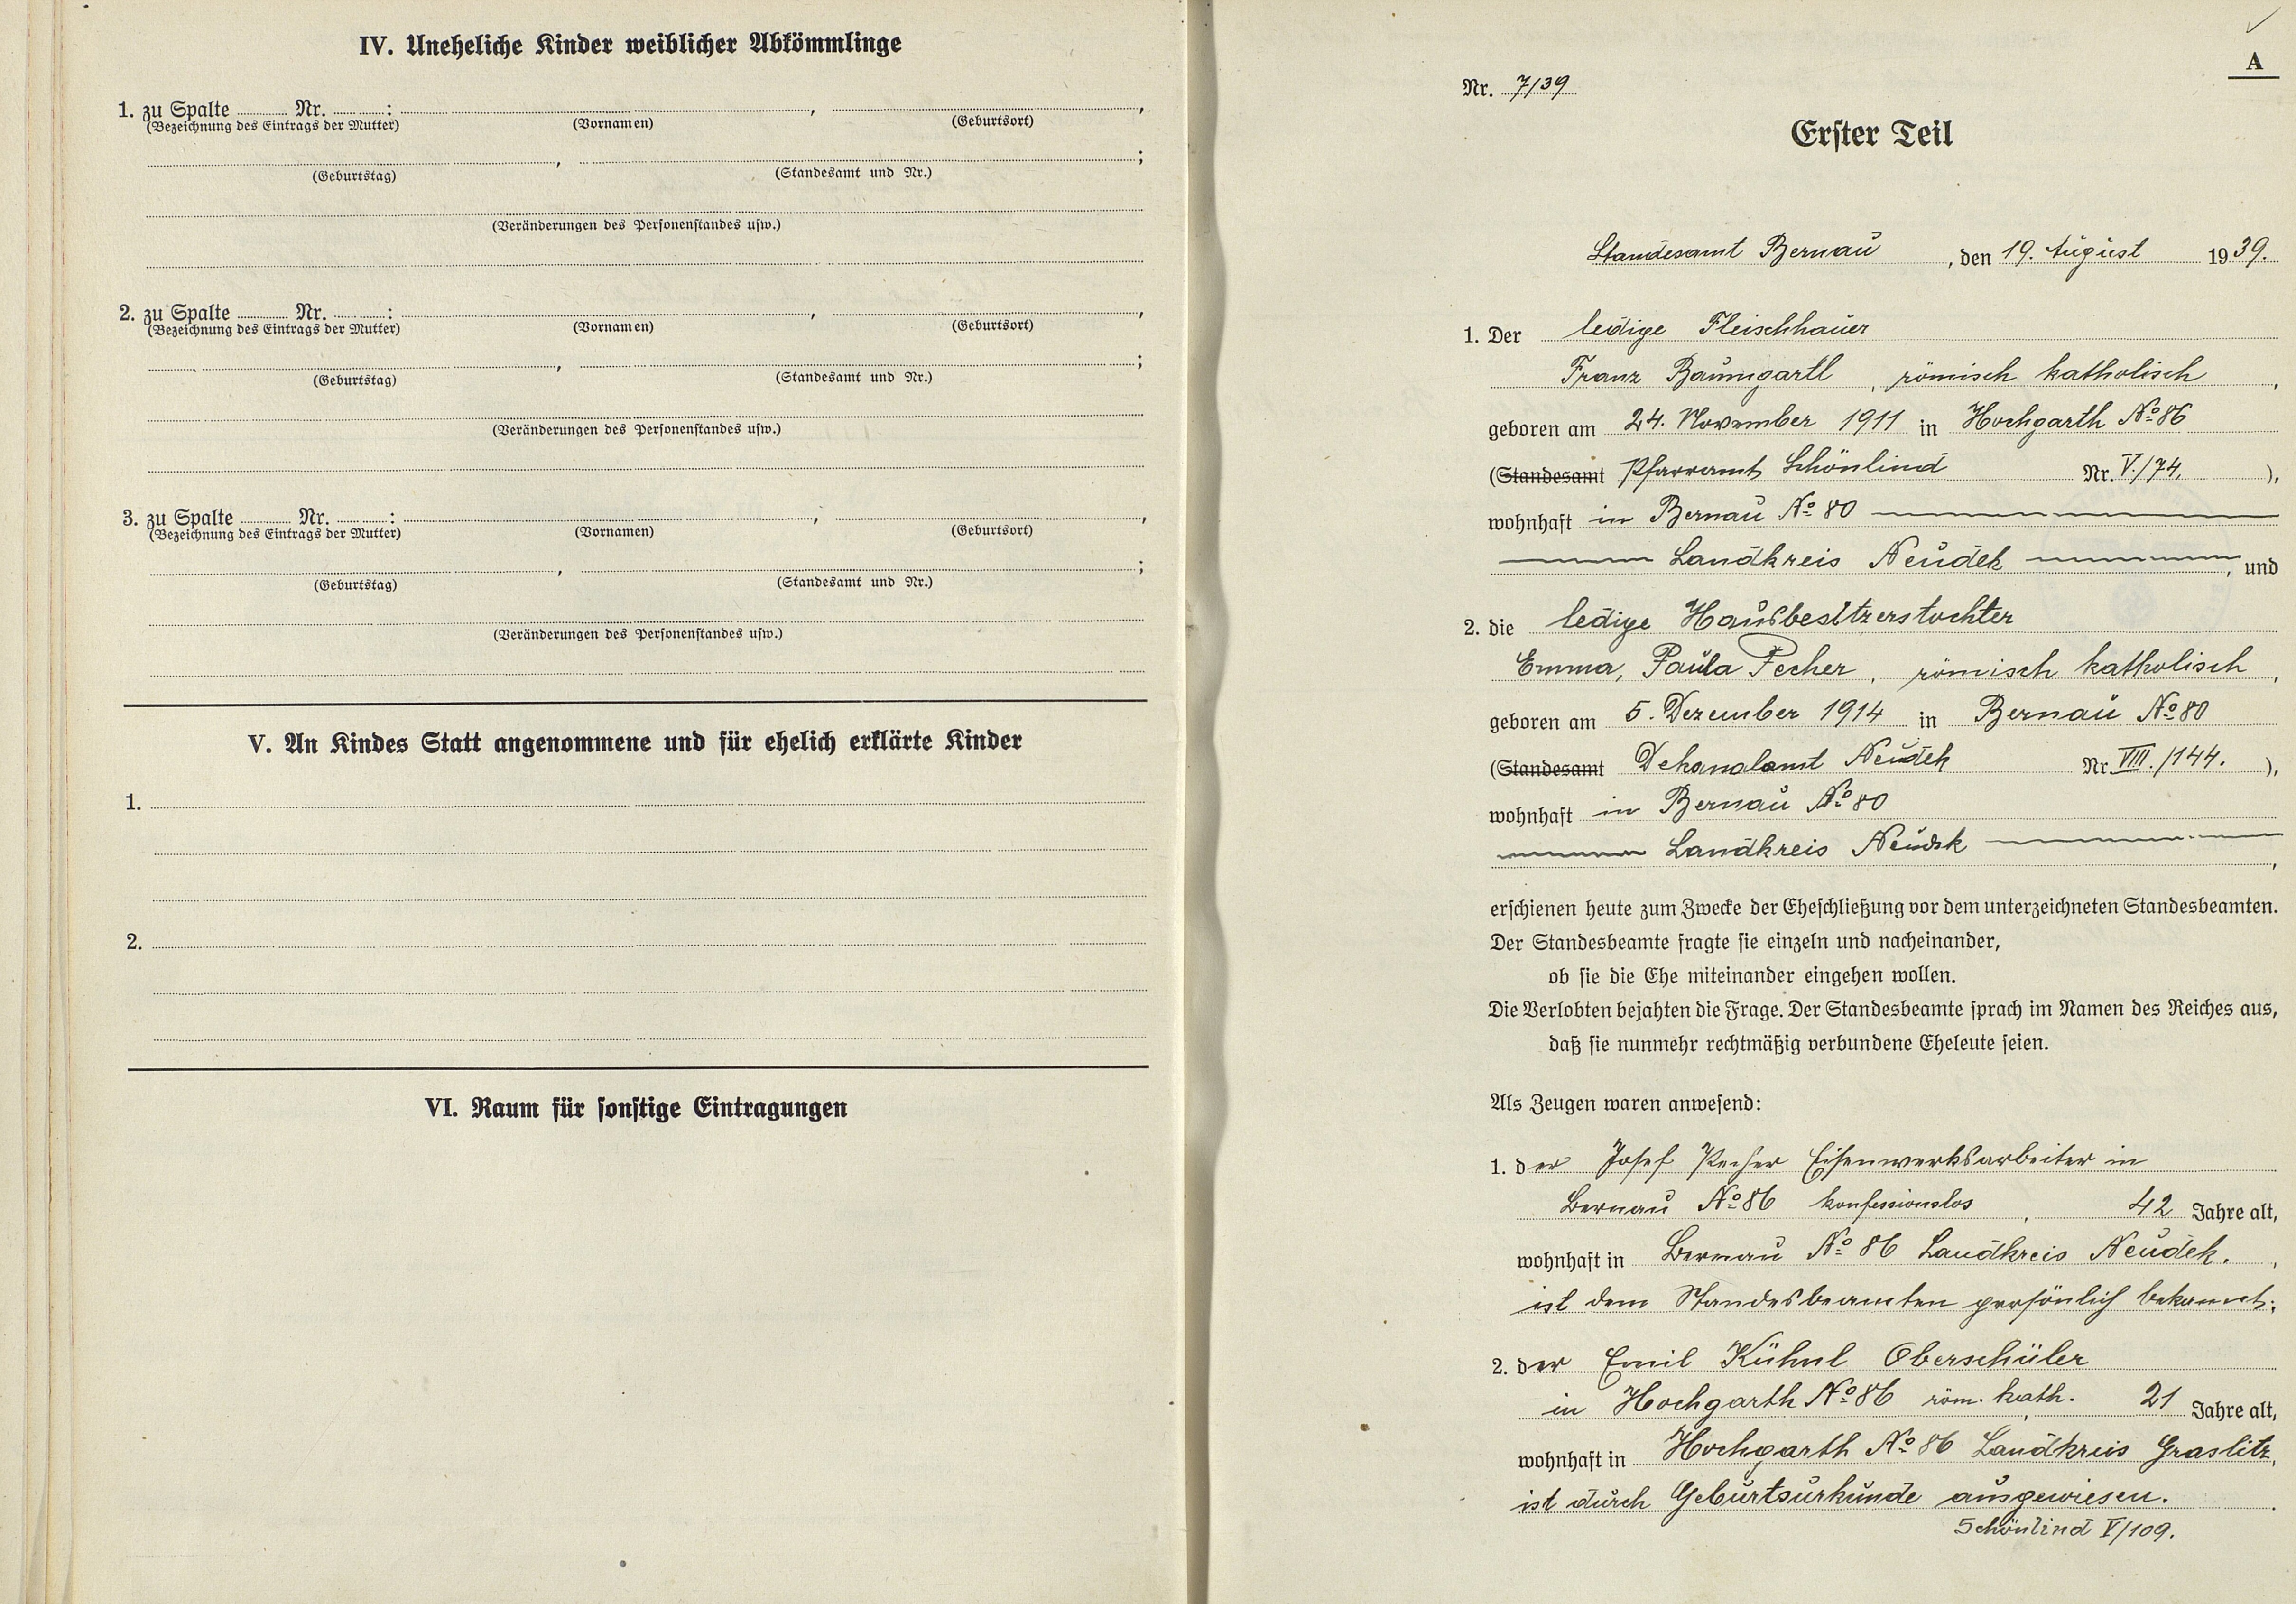 IV. Uneheliche Kinder weiblicher Abkömmlinge
1. zu Spalte ........ Nr. ........:  ,  ,
(Bezeichnung des Eintrags der Mutter) (Vornamen) (Geburtsort)
,  ;
(Geburtstag) (Standesamt und Nr.)
(Veränderungen des Personenstandes usw.)
2. zu Spalte ........ Nr. ........:  ,  ,
(Bezeichnung des Eintrags der Mutter) (Vornamen) (Geburtsort)
,  ;
(Geburtstag) (Standesamt und Nr.)
(Veränderungen des Personenstandes usw.)
3. zu Spalte ........ Nr. ........:  ,  ,
(Bezeichnung des Eintrags der Mutter) (Vornamen) (Geburtsort)
,  ;
(Geburtstag) (Standesamt und Nr.)
(Veränderungen des Personenstandes usw.)
V. An Kindes Statt angenommene und für ehelich erklärte Kinder
1.
2.
VI. Raum für sonstige Eintragungen
A
Nr. 7/39
Erster Teil
Standesamt Bernau, den 19. August 1939.
1. Der ledige Fleischhauer
Franz Baumgartl, römisch katholisch,
geboren am 24. November 1911 in Hochgarth No 86
(Standesamt Pfarramt Schönlind Nr. V./74. ),
wohnhaft in Bernau No 80
Landkreis Neudek, und
2. die ledige Hausbesitzerstochter
Emma, Paula Pecher, römisch katholisch,
geboren am 5. Dezember 1914 in Bernau No 80
(Standesamt Dekanalamt Neudek Nr. VIII./144. ),
wohnhaft in Bernau No 80
Landkreis Neudek,
erschienen heute zum Zwecke der Eheschließung vor dem unterzeichneten Standesbeamten.
Der Standesbeamte fragte sie einzeln und nacheinander,
ob sie die Ehe miteinander eingehen wollen.
Die Verlobten bejahten die Frage. Der Standesbeamte sprach im Namen des Reiches aus,
daß sie nunmehr rechtmäßig verbundene Eheleute seien.
Als Zeugen waren anwesend:
1. der Josef Pecher Eisenwerksarbeiter in
Bernau No 86 konfessionslos, 42 Jahre alt,
wohnhaft in Bernau No 86 Landkreis Neudek.,
ist dem Standesbeamten persönlich bekannt;
2. der Emil Kühnl Oberschüler
in Hochgarth No 86 röm. kath., 21 Jahre alt,
wohnhaft in Hochgarth No 86 Landkreis Graslitz,
ist durch Geburtsurkunde ausgewiesen.
Schönlind V/109.